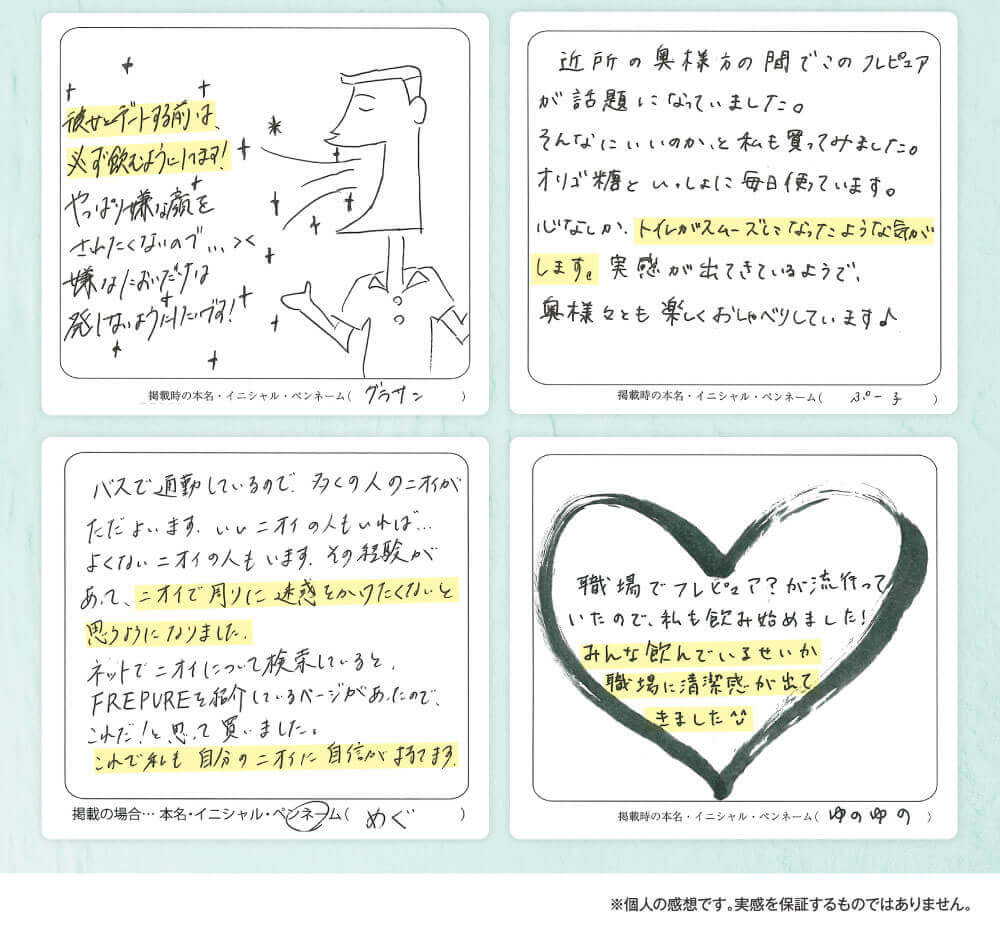 彼女とデートする前は、
必ず飲むようにしてます!
やっぱり嫌な顔を
されたくないので… ><
嫌なにおいだけは
発しないようにしたいです!
掲載時の本名・イニシャル・ペンネーム( グラサン )
近所の奥様方の間でこのフレピュア
が話題になっていました。
そんなにいいのか、と私も買ってみました。
オリゴ糖といっしょに毎日使っています。
心なしか、トイレがスムーズになったような気が
します。実感が出てきているようで、
奥様々とも楽しくおしゃべりしています♪
掲載時の本名・イニシャル・ペンネーム( ぷー子 )
バスで通勤しているので、多くの人のニオイが
ただよいます。いいニオイの人もいれば…
よくないニオイの人もいます。その経験が
あって、ニオイで周りに迷惑をかけたくないと
思うようになりました。
ネットでニオイについて検索していると、
FREPUREを紹介しているページがあったので、
これだ!と思って買いました。
これで私も自分のニオイに自信がもてます。
掲載の場合… 本名・イニシャル・ペンネーム( めぐ )
職場でフレピュア?が流行って
いたので、私も飲み始めました!
みんな飲んでいるせいか
職場に清潔感が出て
きました^^
掲載時の本名・イニシャル・ペンネーム( ゆのゆの )
※個人の感想です。実感を保証するものではありません。